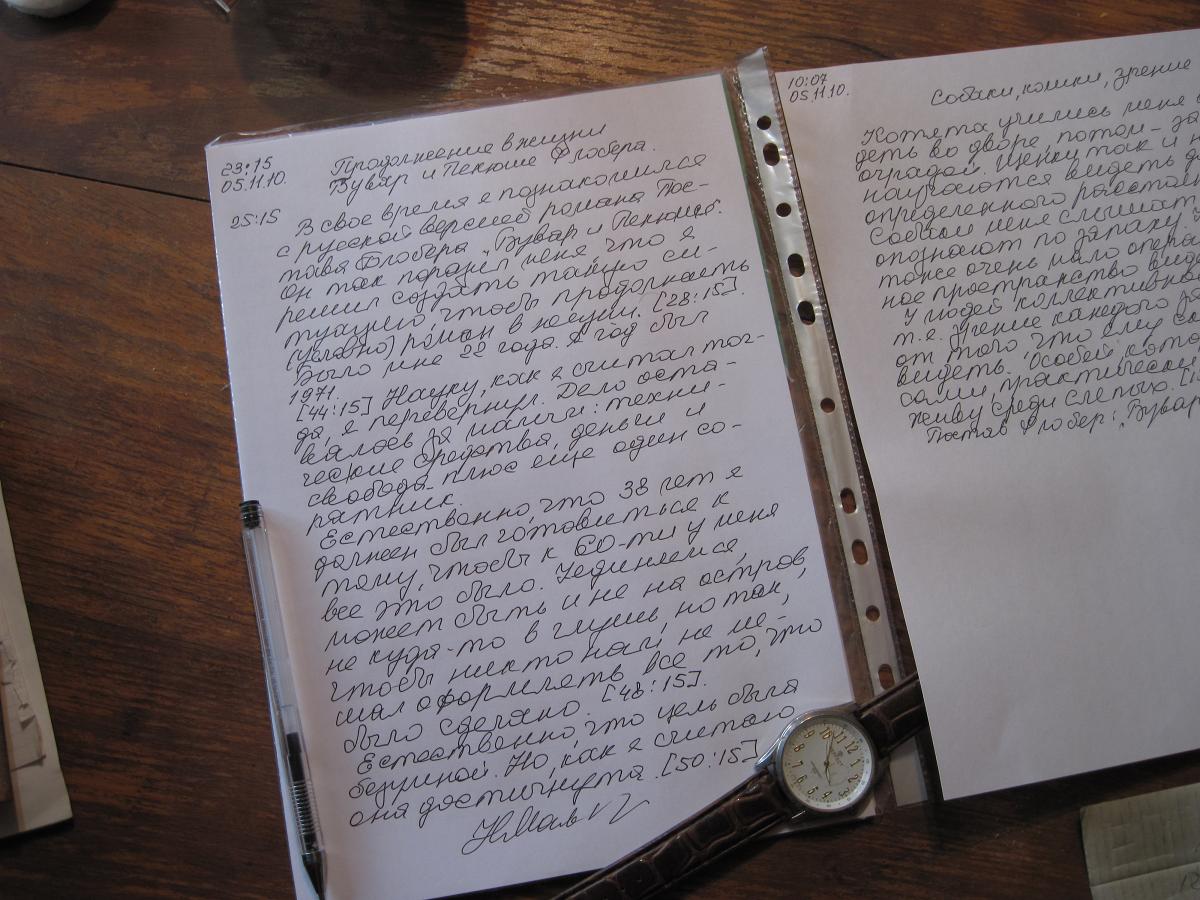 23:15
05.11.10.
Продолжение в жизни
Бувар и Пекюше Флобера.
25:15
В свое время я познакомился
с русской версией романа Гюс-
тава Флобера "Бувар и Пекюше".
Он так поразил меня что я
решил создать такую си-
туацию чтобы продолжать
(условно) роман в жизни. [28:15].
Было мне 22 года. А год был
1971.
[44:15] Науку, как я считал тог-
да, я перевернул. Дело оста-
валось за малым: техни-
ческие средства, деньги и
свобода плюс еще один со-
ратник.
Естественно, что 38 лет я
должен был готовиться к
тому, чтобы к 60-ти у меня
все это было. Уединяемся,
может быть и не на остров,
не куда-то в глушь, но так,
чтобы никто нам не ме-
шал оформлять все то, что
было сделано. [48:15].
Естественно, что цель была
безумной. Но, как я считаю
она достигнута. [50:15]
10:07
05.11.10.
Собаки, кошки, зрение
Котята учились меня
деть во дворе, потом - за
оградой. Щенки так и
научаются видеть
определенного расстоя
Собаки меня слышат
опознают по запаху.
тоже очень мало опера
ное пространство виде
У людей коллективно
т.е. зрение каждого за
от того что ему ска
видеть. Особей кото
сами, практически
живу среди слепых.
Гюстав Флобер: "Бувар
12 11 10 9 8 7 6 5 4 3 2 1